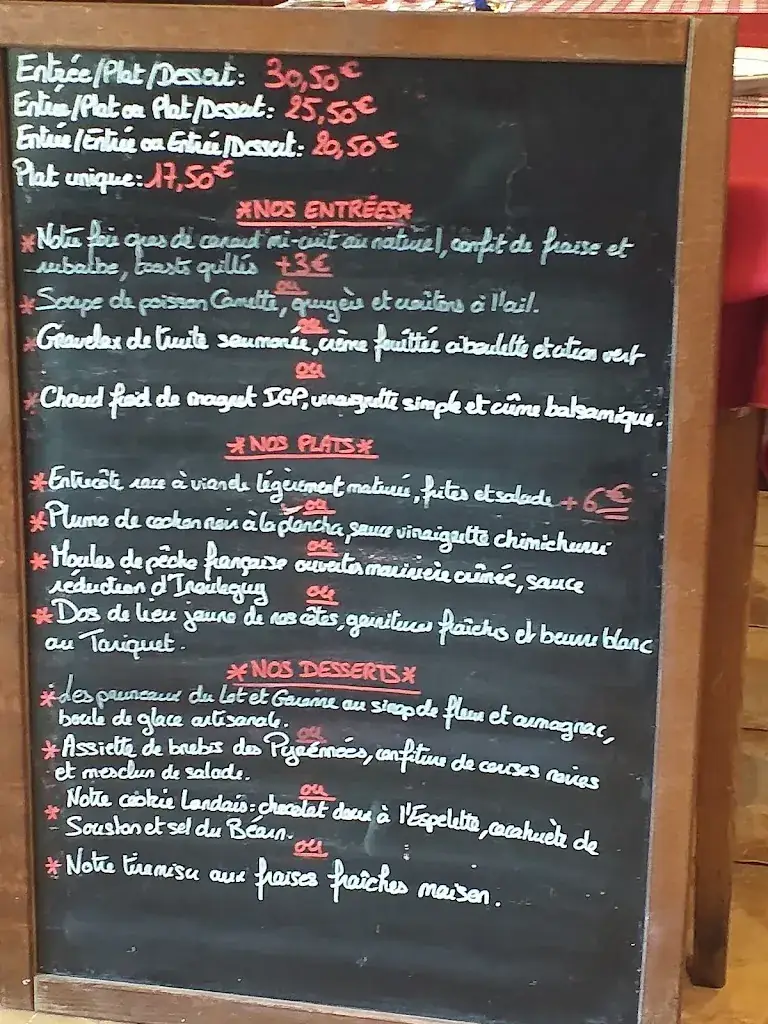 Entrée/Plat/Dessert: 30,50€
Entrée/Plat ou Plat/Dessert: 25,50€
Entrée/Entrée ou Entrée/Dessert: 20,50€
Plat unique: 17,50€
*NOS ENTRÉES*
*Notre foie gras de canard mi-cuit au naturel, confit de fraise et
rubarbe, toasts grillés +3€
ou
*Soupe de poisson Camette, gruyère et croûtons à l'ail.
ou
*Gravelax de truite saumonée, crème fouettée ciboulette et citron vert
ou
*Chaud froid de magret IGP, vinaigrette simple et crème balsamique.
*NOS PLATS*
*Entrecôte race à viande légèrement maturée, frites et salade +6€
ou
*Pluma de cochon noir à la plancha, sauce vinaigrette chimichurri
ou
*Moules de pêche française ouvertes marinière crémée, sauce
réduction d'Irouleguy
ou
*Dos de lieu jaune de nos côtes, garnitures fraîches et beurre blanc
au Tariquet.
*NOS DESSERTS*
*Les pruneaux du Lot et Garonne au sirop de fleur et armagnac,
boule de glace artisanale.
ou
*Assiette de brebis des Pyrénées, confiture de cerises noires
et mesclun de salade.
ou
*Notre cookie Landais: chocolat doux à l'Espelette, cacahuète de
Souston et sel du Béarn.
ou
*Notre tiramisu aux fraises fraîches maison.